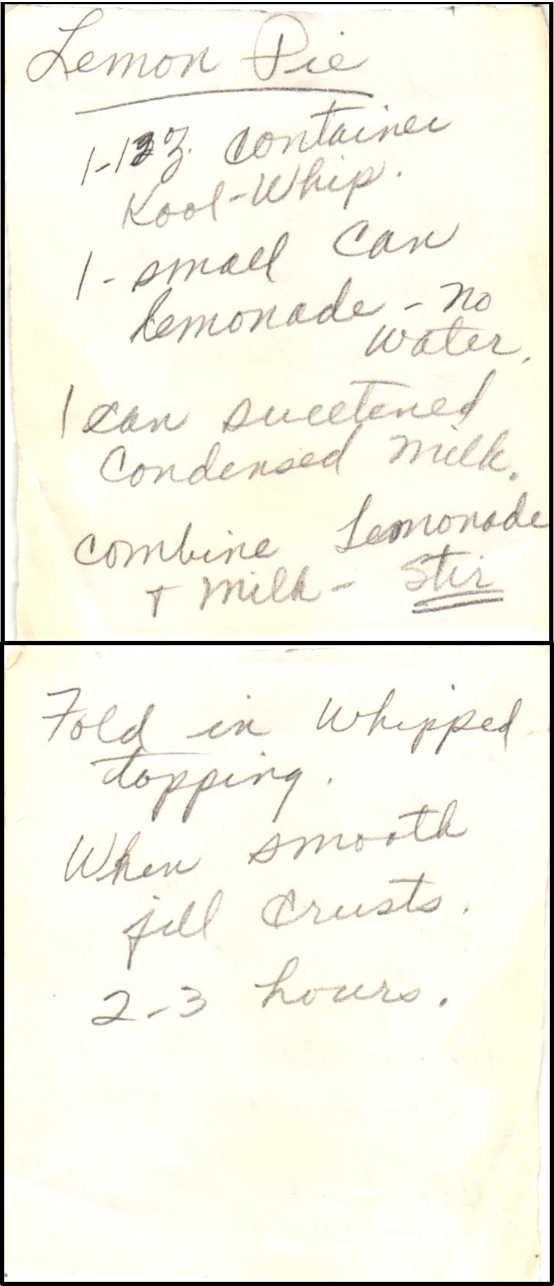 Lemon Pie
1- container
Kool-Whip.
1- small can
lemonade - no
water.
1 can sweetened
Condensed milk.
combine Lemonade
+ milk - Stir
Fold in Whipped
topping.
When smooth
fill Crusts.
2-3 hours.